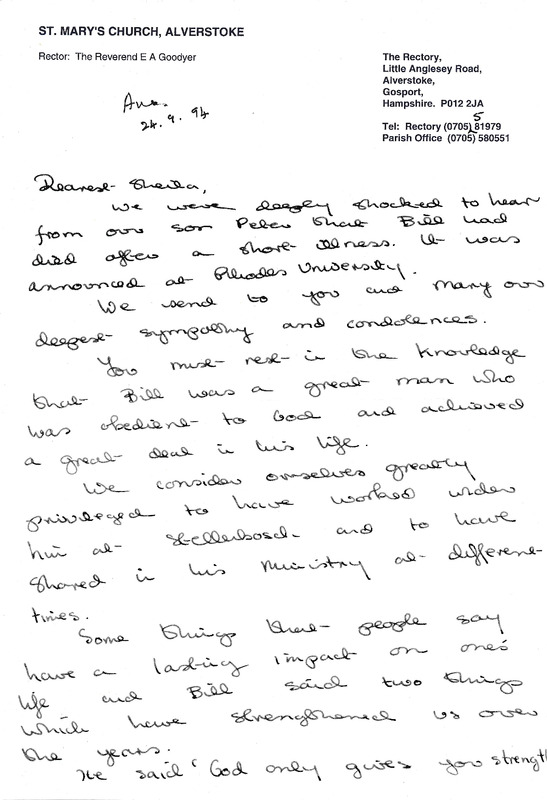 ST. MARY'S CHURCH, ALVERSTOKE
Rector: The Reverend E A Goodyer
The Rectory,
Little Anglesey Road,
Alverstoke,
Gosport,
Hampshire. P012 2JA
5
Tel: Rectory (0705) 81979
Parish Office (0705) 580551
24.9.94
Dearest Sheila,
We were deeply shocked to hear
from our son Peter that Bill had
died after a short illness. It was
announced at Rhodes University.
We send to you and many our
deepest sympathy and condolences.
You must rest in the knowledge
that Bill was a great man who
was obedient to God and achieved
a great deal in his life.
We consider ourselves greatly
privileged to have worked under
him at Stellenbosch and to have
shared in his Ministry at different
times.
Some things that people say
have a lasting impact on one's
life and Bill said two things
which have strengthened us over
the years.
He said 'God only gives you strength